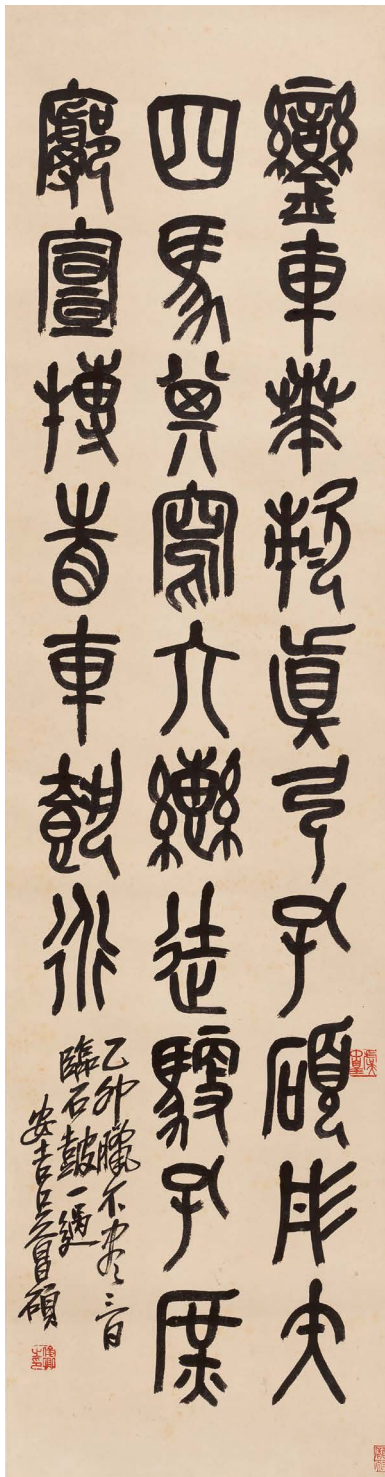 鑾車𠦪敕真弓孔碩彤矢
四馬其寫六轡徒馭孔庶
廓宣搏眚車載行
乙卯臘不盡三日
臨石鼓一
安吉吳昌碩